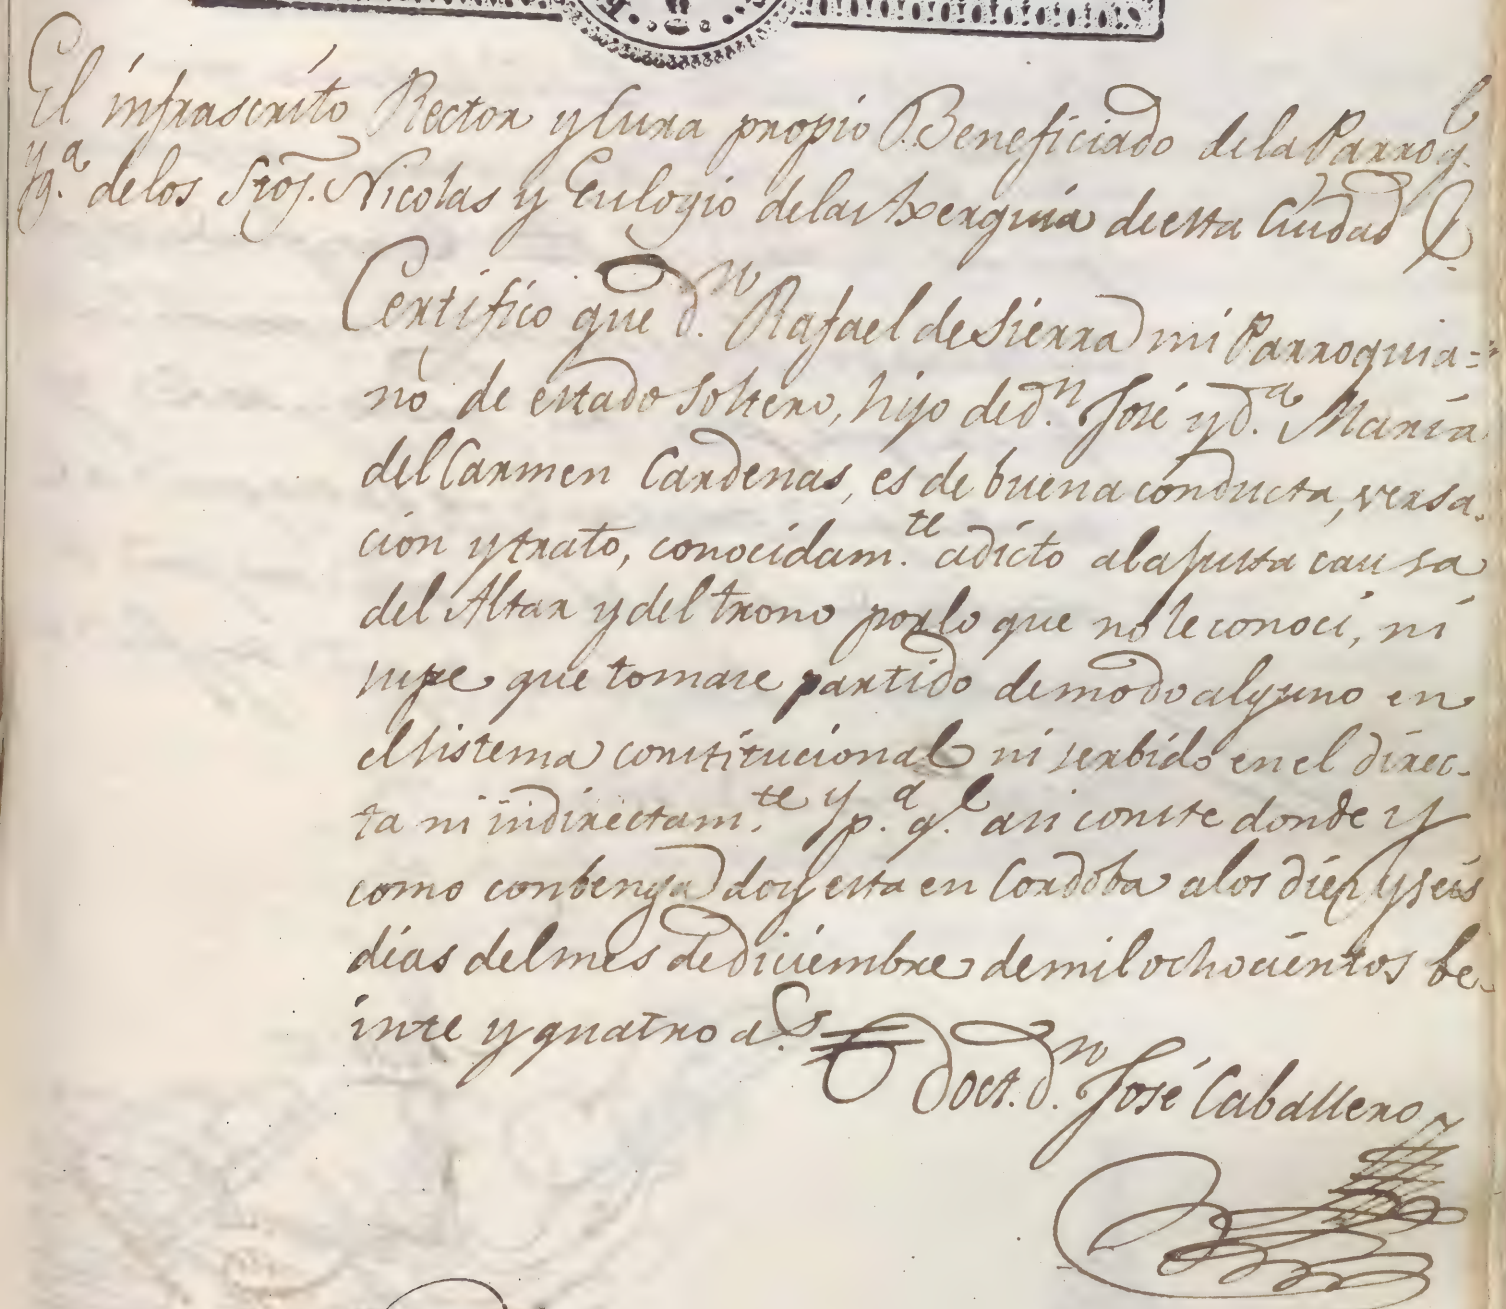 El infrascrito Rector y Cura propio Beneficiado de la Parroq.l
Yg.a de los Stos. Nicolas y Eulogio de la Axerquia de esta Ciudad
Certifico que d.n Rafael de Sierra mi Parroquia=
no de estado soltero, hijo de d.n José y d.a María
del Carmen Cardenas, es de buena conducta, versa-
cion y trato, conocidam.te adicto a la justa causa
del Altar y del trono por lo que no le conoci, ni
supe que tomase partido de modo alguno en
el sistema constitucional ni serbido en el direc-
ta ni indirectam.te y p.a q.e asi conste donde y
como conbenga doy esta en Cordoba a los diez y seis
dias del mes de diciembre de mil ochocientos be-
inte y quatro a.s
Doct. d.n José Caballero